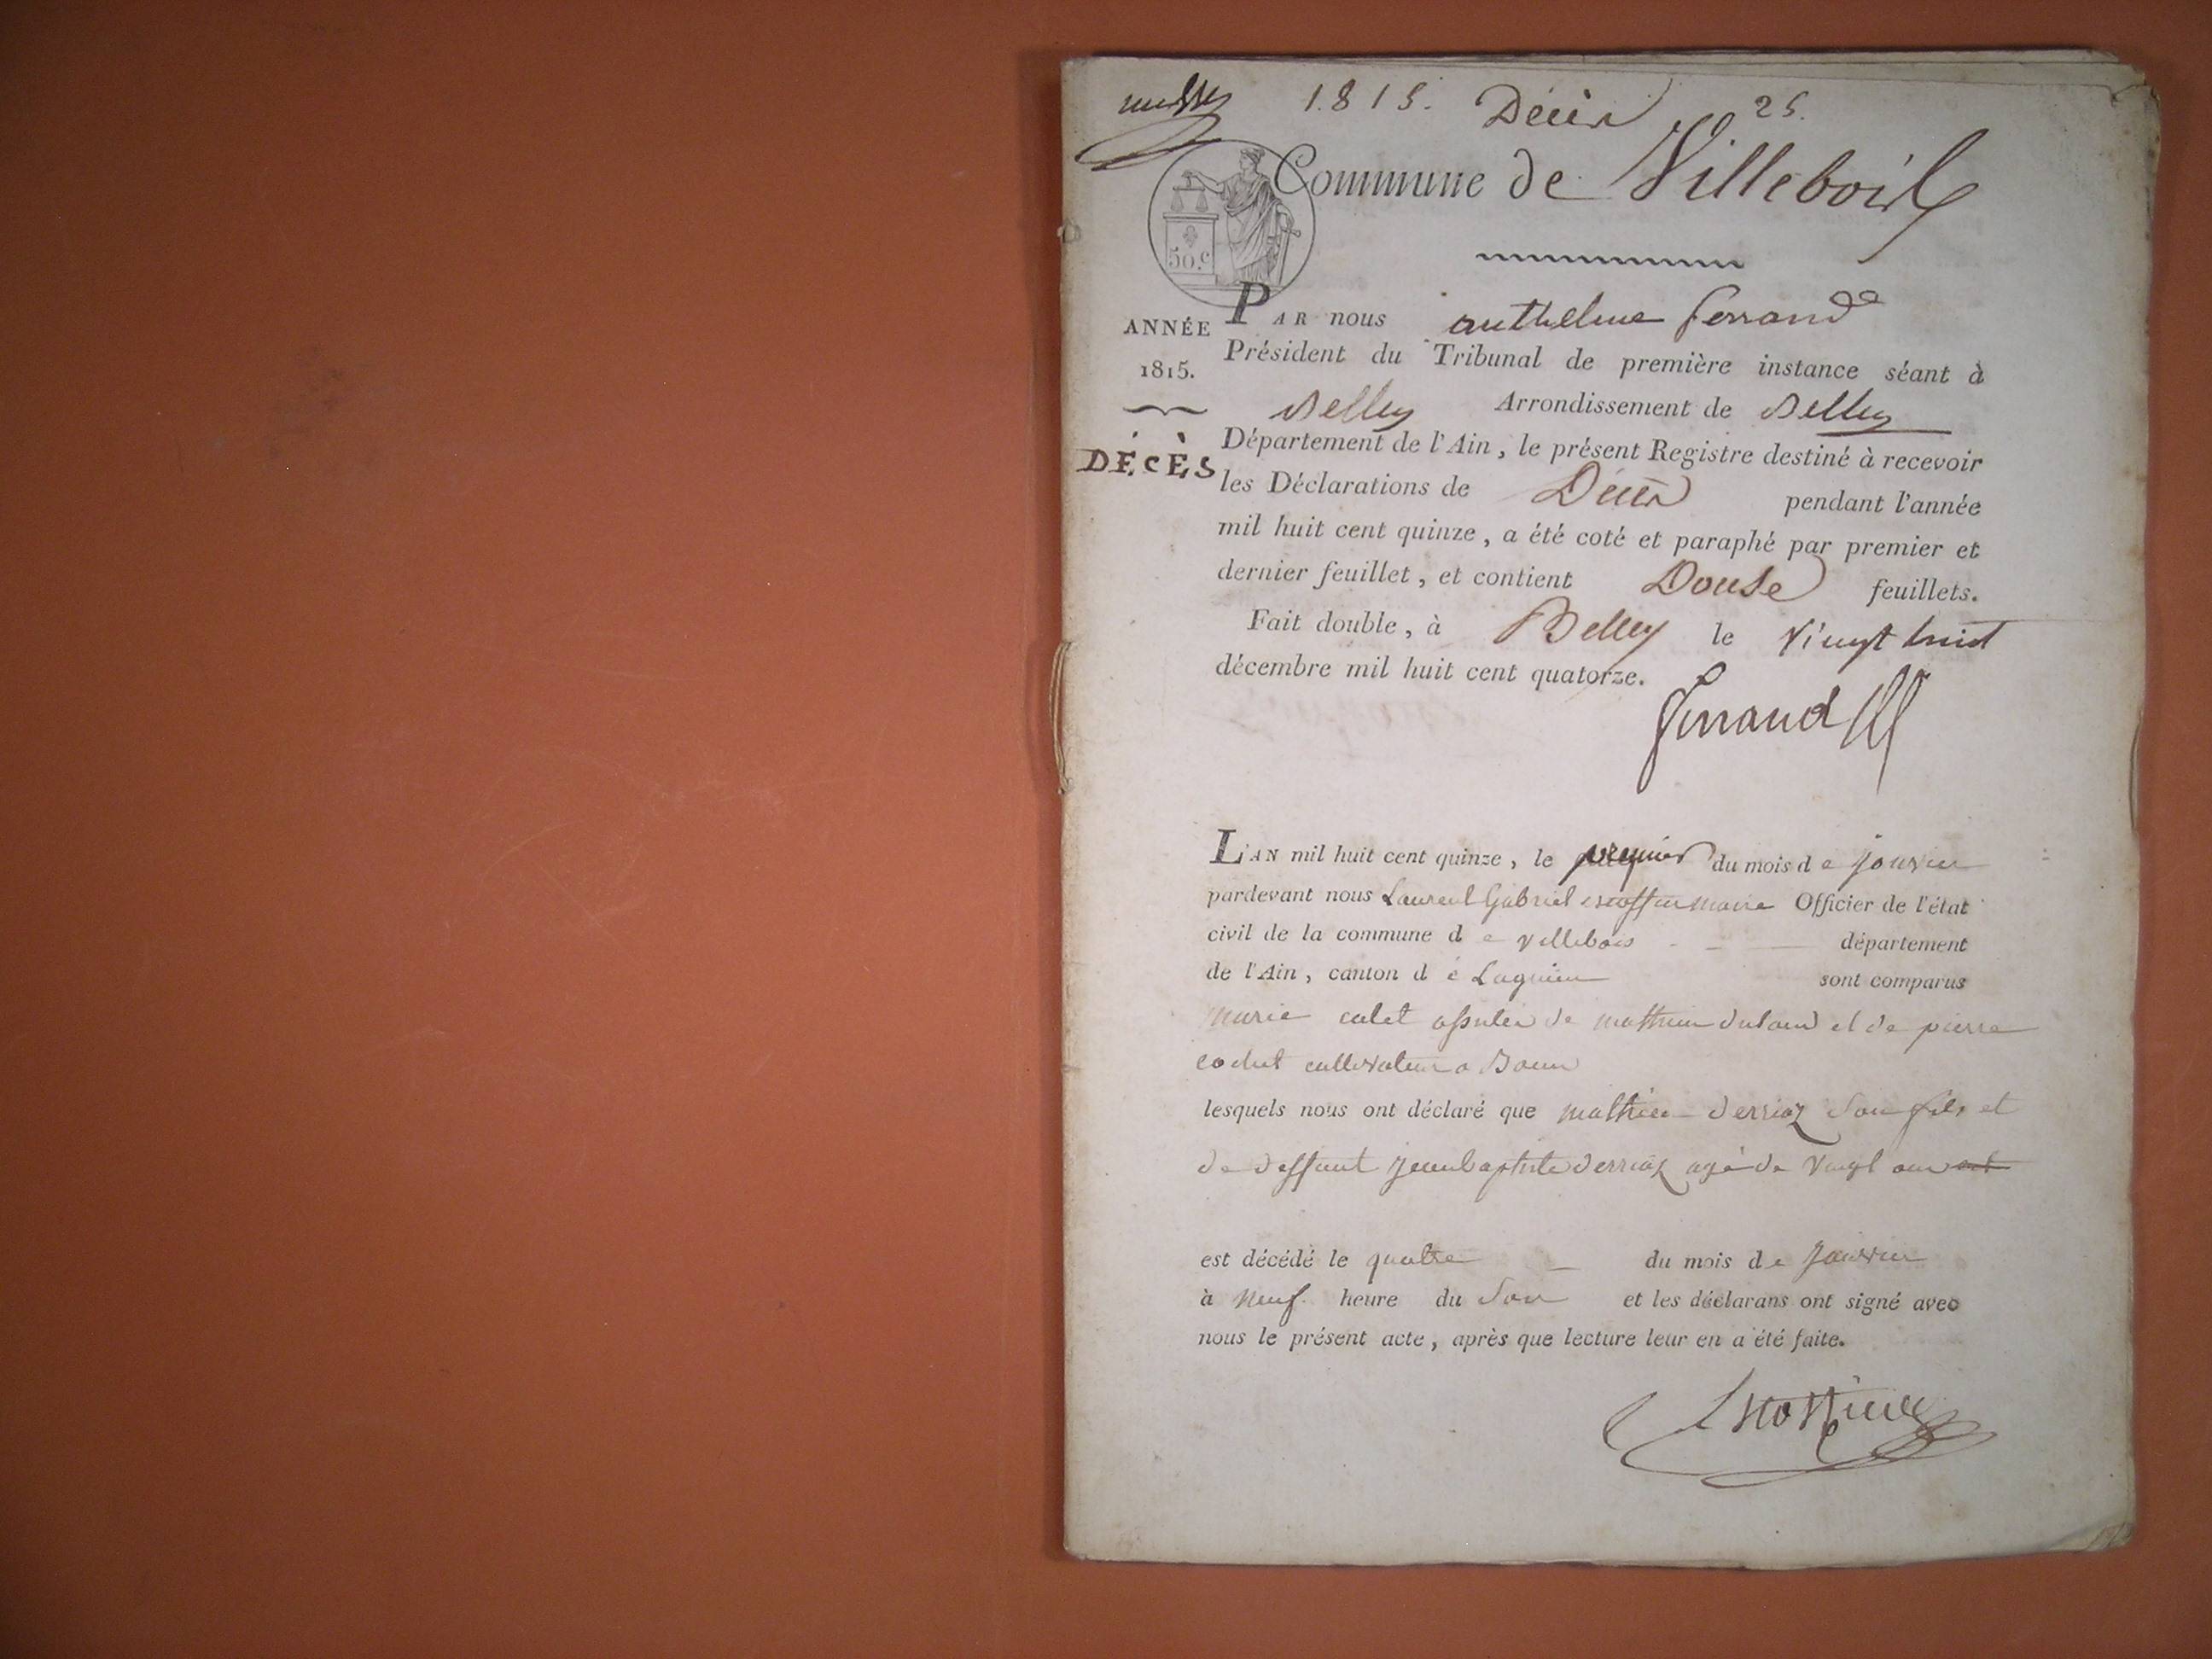 1.815. Décès 25.
Commune de Villebois
50.c
PAR nous anthelme ferrand
ANNÉE
1815.
DÉCÈS
Président du Tribunal de première instance séant à
Belley Arrondissement de Belley
Département de l'Ain, le présent Registre destiné à recevoir
les Déclarations de Décès pendant l'année
mil huit cent quinze, a été coté et paraphé par premier et
dernier feuillet, et contient Douse feuillets.
Fait double, à Belley le vingt huit
décembre mil huit cent quatorze.
ferrand
L'AN mil huit cent quinze, le du mois de janvier
pardevant nous Laurent Gabriel escoffier maire Officier de l'état
civil de la commune de villebois département
de l'Ain, canton de Lagnieu sont comparus
marie calet de mathieu et de pierre
cochet cultivateur a
lesquels nous ont déclaré que mathieu derriaz son fils et
de deffunt jeanbaptiste derriaz agé de vingt ans
est décédé le quatre du mois de janvier
à neuf heure du soir et les déclarans ont signé avec
nous le présent acte, après que lecture leur en a été faite.
Escoffier